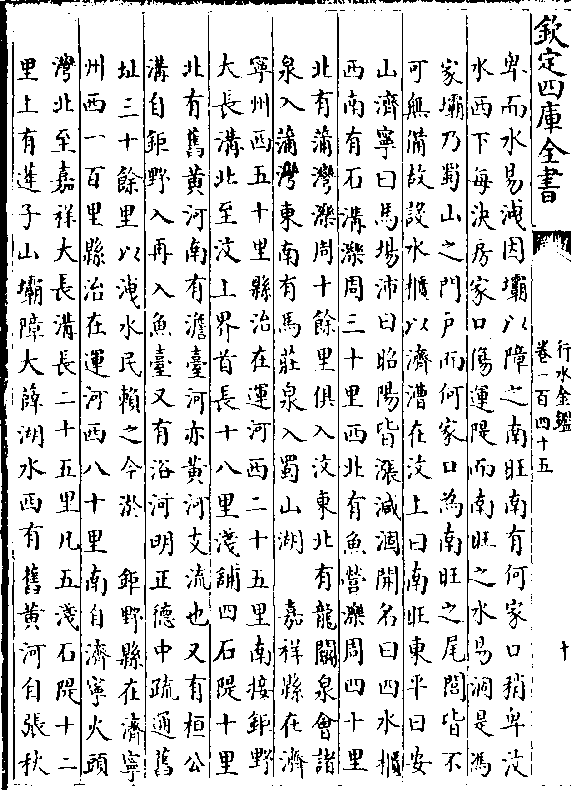 欽定四庫全書
行水金鑑
卷一百四十五
十
卑而水易洩因壩以障之南旺南有何家口稍卑汶
水西下每決房家口傷運隄而南旺之水易涸是馮
家壩乃蜀山之門戶而何家口為南旺之尾閭皆不
可無備故設水櫃以濟漕在汶上曰南旺東平曰安
山濟寧曰馬場沛曰昭陽皆漲減涸開名曰四水櫃
西南有石溝濼周三十里西北有魚營濼周四十里
北有蒲灣濼周十餘里俱入汶東北有龍鬬泉會諸
泉入蒲灣東南有馬莊泉入蜀山湖　嘉祥縣在濟
寧州西五十里縣治在運河西二十五里南接鉅野
大長溝北至汶上界首長十八里淺鋪四石隄十里
北有舊黃河南有澹臺河亦黃河支流也又有桓公
溝自鉅野入再入魚臺又有浴河明正德中疏通舊
址三十餘里以洩水民賴之今淤　鉅野縣在濟寧
州西一百里縣治在運河西八十里南自濟寧火頭
灣北至嘉祥大長溝長二十五里凡五淺石隄十二
里上有蓮子山壩障大薛湖水西有舊黃河自張秋